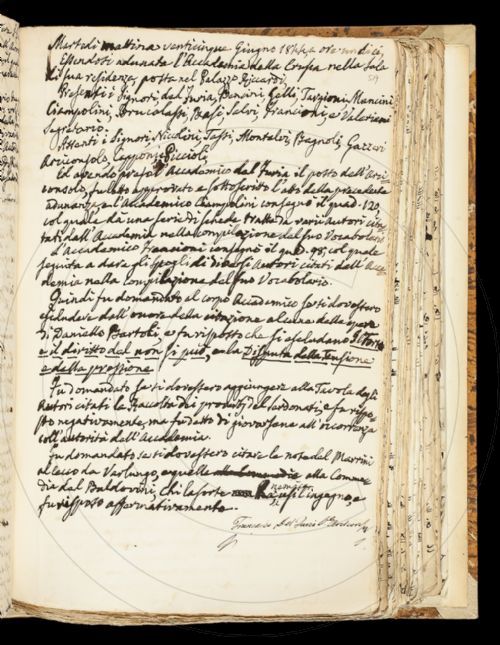 Martedì mattina venticinque Giugno 1844 a ore undici,
Essendosi adunata l'Accademia della Crusca nella Sala
di sua residenza, posta nel Palazzo Riccardi.
Presenti i Signori, del Furia, Bencini, Gelli, Targioni, Mancini,
Ciampolini, Brucalassi, Basi, Salvi, Francioni, e Valeriani
Segretario.
Assenti i Signori, Niccolini, Tassi, Montalvi, Bagnoli, Gazzeri
Arciconsolo, Capponi, e Piccioli.
Ed avendo preso l'Accademico del Furia il posto dell'Arci
consolo, fu letto approvato e sottoscritto l'atto della precedente
adunanza, e l'Accademico Ciampolini consegnò il quad. 120,
col quale dà una serie di schede tratte da varii autori ci
tati dall'Accademia nella compilazione del suo Vocabolario
L'Accademico Francioni consegnò il quad. 98, col quale
seguita a dare gli spogli di diversi autori citati dall'Acca
demia nella Compilazione del suo Vocabolario.
Quindi fu domandato al corpo Accademico se si dovessero
escludere dall'onore della citazione alcune delle opere
di Daniello Bartoli, e fu risposto che si escludano Il Torto
e il diritto del non si può, e la Disputa della Tensione
e della pressione
Fu domandato se si dovesse aggiungere alla Tavola degli
Autori citati la Raccolta dei prodotti del Lardonati, e fu rispo
sto negativamente, ma fu detto di giovarsene all'occorrenza
coll'autorità dell'Accademia.
Fu domandato se si dovessero citare le note del Marrini
al Cecco da Varlungo, e quelle alla Comme
dia del Baldovini, Chi la sorte ha nemica usi l'ingegno, e
fu risposto affermativamente.
Francesco del Furia